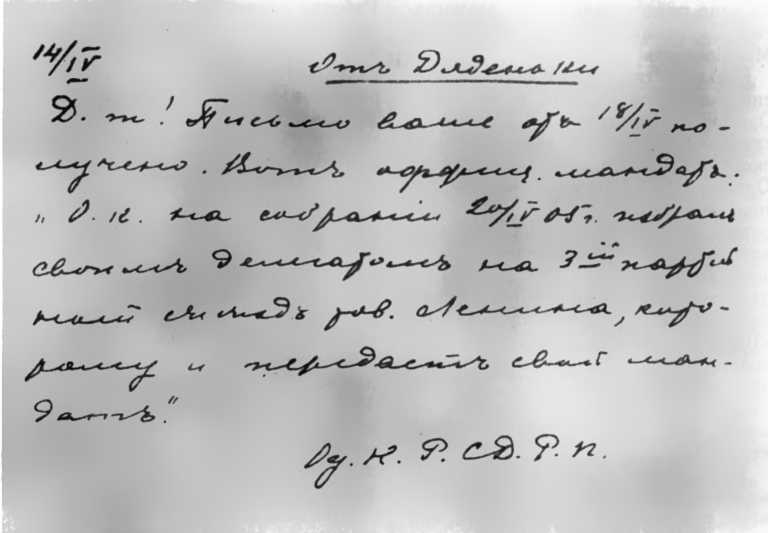 14/IV
Отъ Дяденьки
Д. т! Письмо ваше отъ 18/IV по-
лучено. Вотъ оффиц. мандатъ:
„О. К. на собраніи 20/IV 05 г. избралъ
своимъ делегатомъ на 3ій партій
ный съѣздъ тов. Ленина, кото-
рому и передаетъ свой ман-
датъ."
Од. К. Р. С. Д. Р. П.